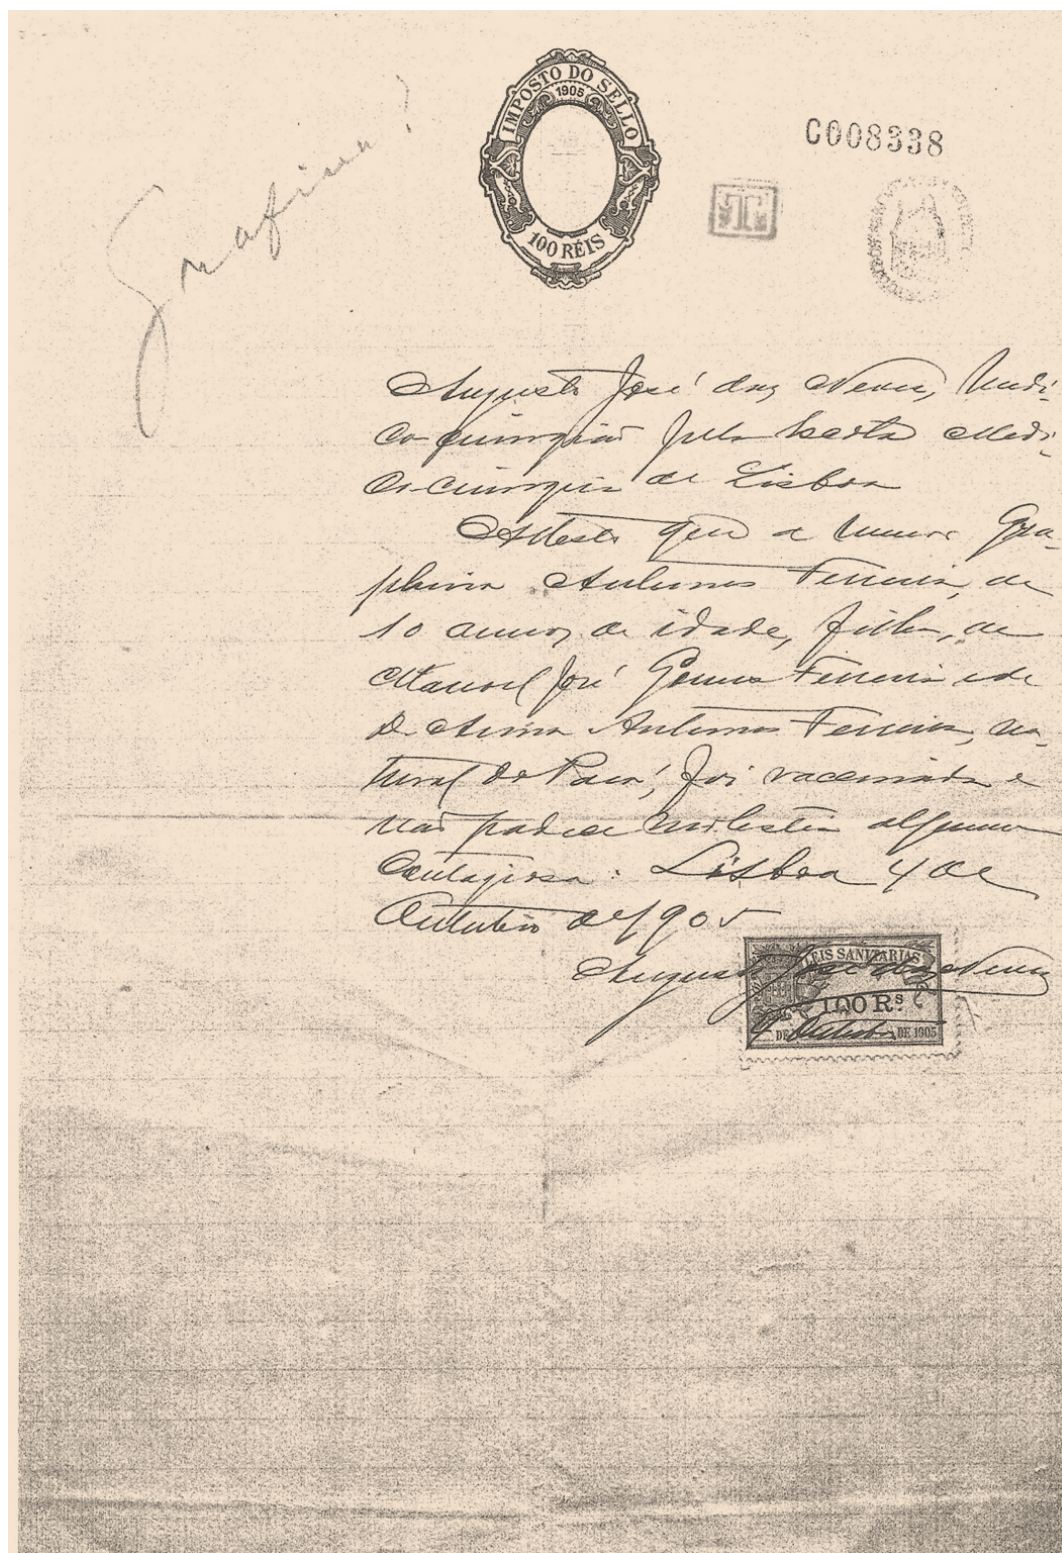 IMPOSTO DO SELLO
1905
100 RÉIS
C008338
T
Augusto José das Neves, Medi-
co-cirurgião pela Escola Medi-
co-cirurgica de Lisboa
Attesto que a menor Gra-
phina Antunes Ferreira, de
10 annos de idade, filha, de
Manoel José Gomes Ferreira e de
D. Anna Antunes Ferreira, na-
tural do Pará, foi vaccinada e
não padece molestia alguma
contagiosa. Lisboa 4 de
Outubro de 1905
Augusto José das Neves
LEIS SANITARIAS
100 Rs.
4 DE Outubro DE 1905